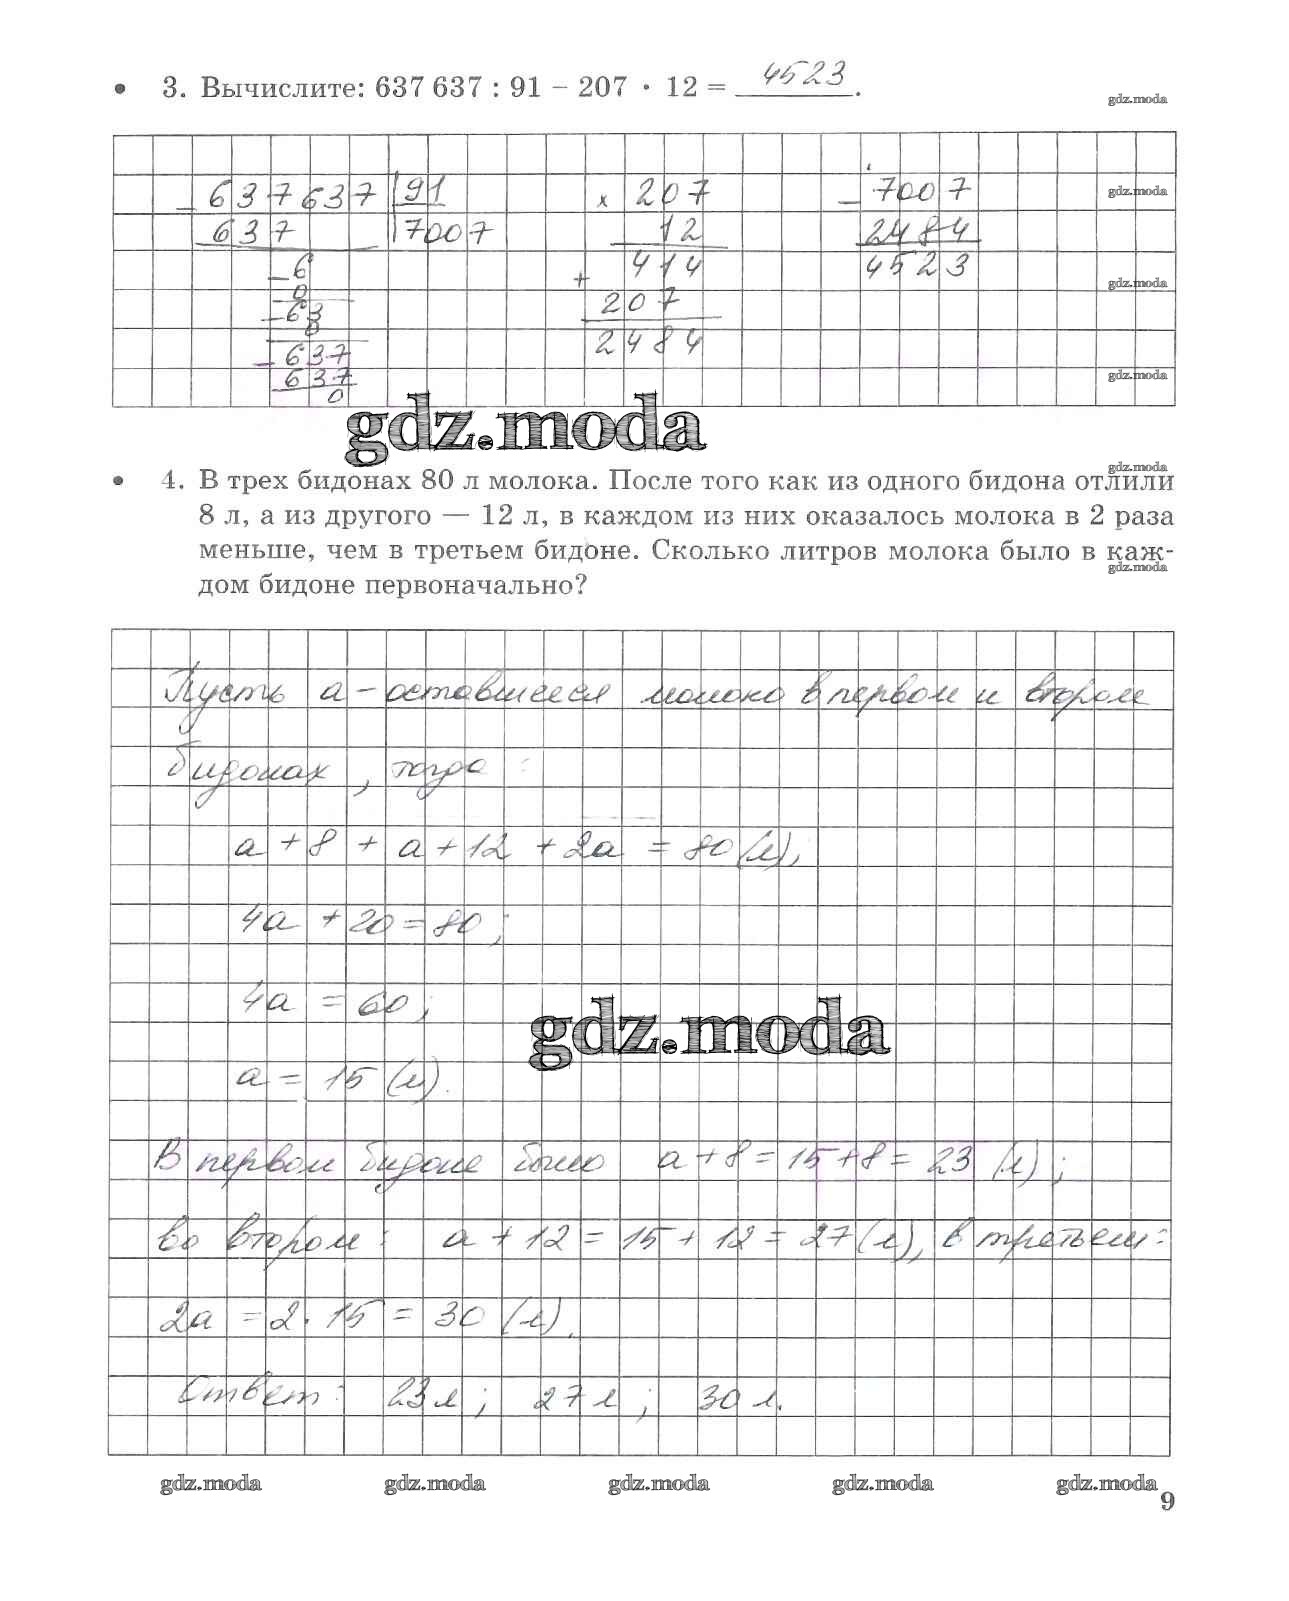 3. Вычислите: 637 637 : 91 – 207 · 12 = 4523.
gdz.moda
637637 |91 × 207 – 7007
gdz.moda
637 |7007 12 2484
–6 + 414 4523
gdz.moda
0 207
–63 2484
0
–637
637
gdz.moda
0
gdz.moda
gdz.moda
4. В трех бидонах 80 л молока. После того как из одного бидона отлили
8 л, а из другого — 12 л, в каждом из них оказалось молока в 2 раза
меньше, чем в третьем бидоне. Сколько литров молока было в каж-
gdz.moda
дом бидоне первоначально?
Пусть а – оставшееся молоко в первом и втором
бидонах, тогда:
а + 8 + а + 12 + 2а = 80 (л);
4а + 20 = 80;
4а = 60;
gdz.moda
а = 15 (л).
В первом бидоне было а + 8 = 15 + 8 = 23 (л);
во втором: а + 12 = 15 + 12 = 27 (л), в третьем:
2а = 2 · 15 = 30 (л).
Ответ: 23 л; 27 л; 30 л.
gdz.moda gdz.moda gdz.moda gdz.moda gdz.moda
9